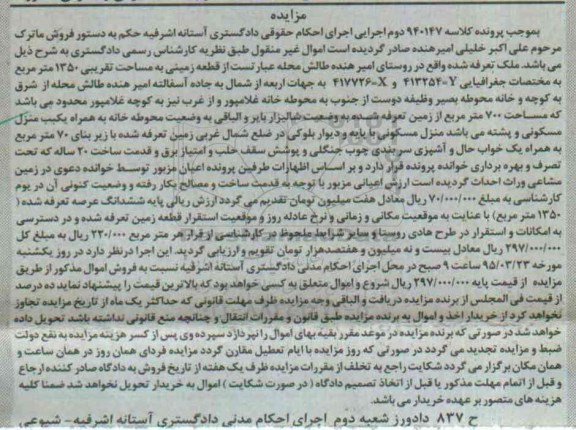 مزایده
بموجب پرونده کلاسه ۹۴۰۱۴۷ دوم اجرایی اجرای احکام حقوقی دادگستری آستانه اشرفیه حکم به دستور فروش ماترک
مرحوم علی اکبر خلیلی امیرهنده صادر گردیده است اموال غیر منقول طبق نظریه کارشناس رسمی دادگستری به شرح ذیل
می باشد. ملک تعرفه شده واقع در روستای امیر هنده طالش محله عبارتست از قطعه زمینی به مساحت تقریبی ۱۳۵۰ متر مربع
به مختصات جغرافیایی Y-۴۱۳۲۵۴ و X-۴۱۷۷۲۶ به جهات اربعه از شمال به جاده آسفالته امیر هنده طالش محله از شرق
به کوچه و خانه محوطه بصیر وظیفه دوست از جنوب به محوطه خانه غلامپور و از غرب نیز به کوچه غلامپور محدود می باشد
که مساحت ۷۰۰ متر مربع از زمین تعرفه شده به وضعیت شالیزار بایر و الباقی به وضعیت محوطه خانه به همراه یکبب منزل
مسکونی و پشته می باشد منزل مسکونی با پایه و دیوار بلوکی در ضلع شمال غربی زمین تعرفه شده با زیر بنای ۷۰ متر مربع
به همراه یک خواب حال و آشپزی سربندی چوب جنگلی و پوشش سقف حلب و امتیاز برق و قدمت ساخت ۲۰ ساله که تحت
تصرف و بهره برداری خوانده پرونده قرار دارد و بر اساس اظهارات طرفین پرونده اعیان مزبور توسط خوانده دعوی در زمین
مشاعی وراث احداث گردیده است ارزش اعیانی مزبور با توجه به قدمت ساخت و مصالح بکار رفته و وضعیت کنونی آن در یوم
کارشناسی به مبلغ ۷۰/۰۰۰/۰۰۰ ریال معادل هفت میلیون تومان تقدیم می گردد ارزش ریالی پایه ششدانگ عرصه تعرفه شده (
۱۳۵۰ متر مربع) با عنایت به موقعیت مکانی و زمانی و نرخ عادله روز و موقعیت استقرار قطعه زمین تعرفه شده و در دسترسی
به امکانات و استقرار در طرح هادی روستا و سایر شرایط ملحوظ در کارشناسی از قرار هر متر مربع ۲۲۰/۰۰۰ ریال به مبلغ کل
۲۹۷/۰۰۰/۰۰۰ ریال معادل بیست و نه میلیون و هفتصدهزار تومان تقویم و ارزیابی گردید. این اجرا درنظر دارد در روز یکشنبه
مورخه ۹۵/۰۳/۲۳ ساعت ۹ صبح در محل اجرای احکام مدنی دادگستری آستانه اشرفیه نسبت به فروش اموال مذکور از طریق
مزایده از قیمت پایه ۲۹۷/۰۰۰/۰۰۰ ریال شروع و اموال متعلق به کسی خواهد بود که بالاترین قیمت را پیشنهاد نماید ده درصد
از قیمت فی المجلس از برنده مزایده دریافت و الباقی وجه مزایده ظرف مهلت قانونی که حداکثر یک ماه از تاریخ مزایده تجاوز
نخواهد کرد از خریدار اخذ و اموال به برنده مزایده طبق قانون و مقررات انتقال و چنانچه منع قانونی نداشته باشد تحویل داده
خواهد شد در صورتی که برنده مزایده در موعد مقرر بقیه بهای اموال را نپردازد سپرده وی پس از کسر هزینه مزایده به نفع دولت
ضبط و مزایده تجدید می گردد در صورتی که روز مزایده با ایام تعطیل مقارن گردد مزایده فردای همان روز در همان ساعت و
همان مکان برگزار می گردد شکایت راجع به تخلف از مقررات مزایده ظرف یک هفته از تاریخ فروش به دادگاه صادر کننده ارجاع
و قبل از اتمام مهلت مذکور یا قبل از اتخاذ تصمیم دادگاه ( در صورت شکایت ) اموال به خریدار تحویل نخواهد شد ضمنا کلیه
هزینه های متصور بر عهده خریدار می باشد.
ح ۸۳۷ دادورز شعبه دوم اجرای احکام مدنی دادگستری آستانه اشرفیه- شیوعی